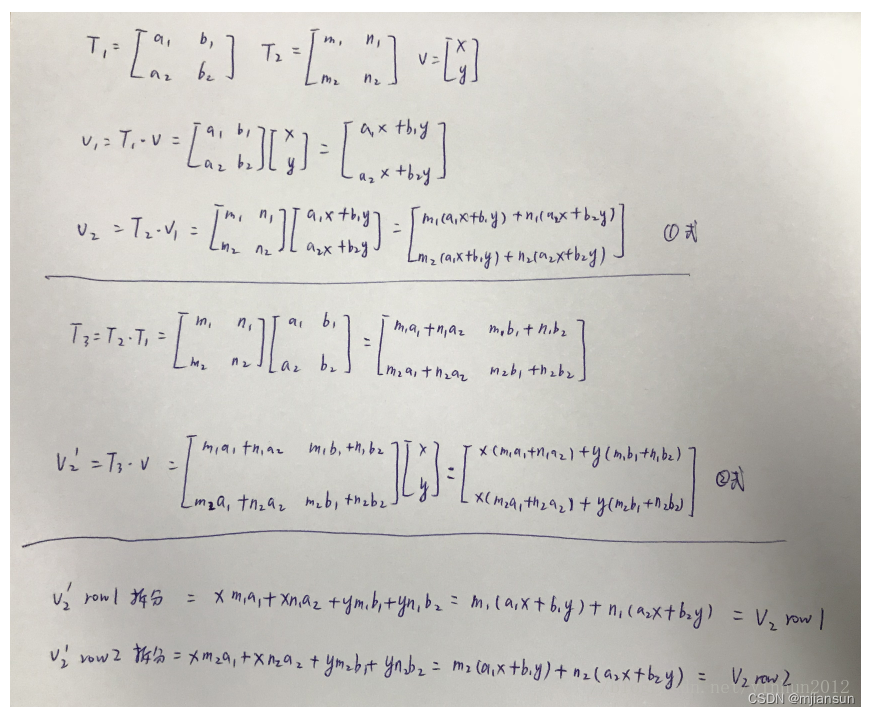 T₁ = [a₁ b₁; a₂ b₂] T₂ = [m₁ n₁; m₂ n₂] v = [x; y]
v₁ = T₁·v = [a₁ b₁; a₂ b₂][x; y] = [a₁x + b₁y; a₂x + b₂y]
v₂ = T₂·v₁ = [m₁ n₁; m₂ n₂][a₁x + b₁y; a₂x + b₂y] = [m₁(a₁x+b₁y) + n₁(a₂x+b₂y); m₂(a₁x+b₁y) + n₂(a₂x+b₂y)] ①式
T₃ = T₂·T₁ = [m₁ n₁; m₂ n₂][a₁ b₁; a₂ b₂] = [m₁a₁+n₁a₂ m₁b₁+n₁b₂; m₂a₁+n₂a₂ m₂b₁+n₂b₂]
V₂' = T₃·v = [m₁a₁+n₁a₂ m₁b₁+n₁b₂; m₂a₁+n₂a₂ m₂b₁+n₂b₂][x; y] = [x(m₁a₁+n₁a₂)+y(m₁b₁+n₁b₂); x(m₂a₁+n₂a₂)+y(m₂b₁+n₂b₂)] ②式
V₂' row1 拆分 = xm₁a₁+xn₁a₂+ym₁b₁+yn₁b₂ = m₁(a₁x+b₁y)+n₁(a₂x+b₂y) = V₂ row1
V₂' row2 拆分 = xm₂a₁+xn₂a₂+ym₂b₁+yn₂b₂ = m₂(a₁x+b₁y)+n₂(a₂x+b₂y) = V₂ row2
CSDN @mjiansun